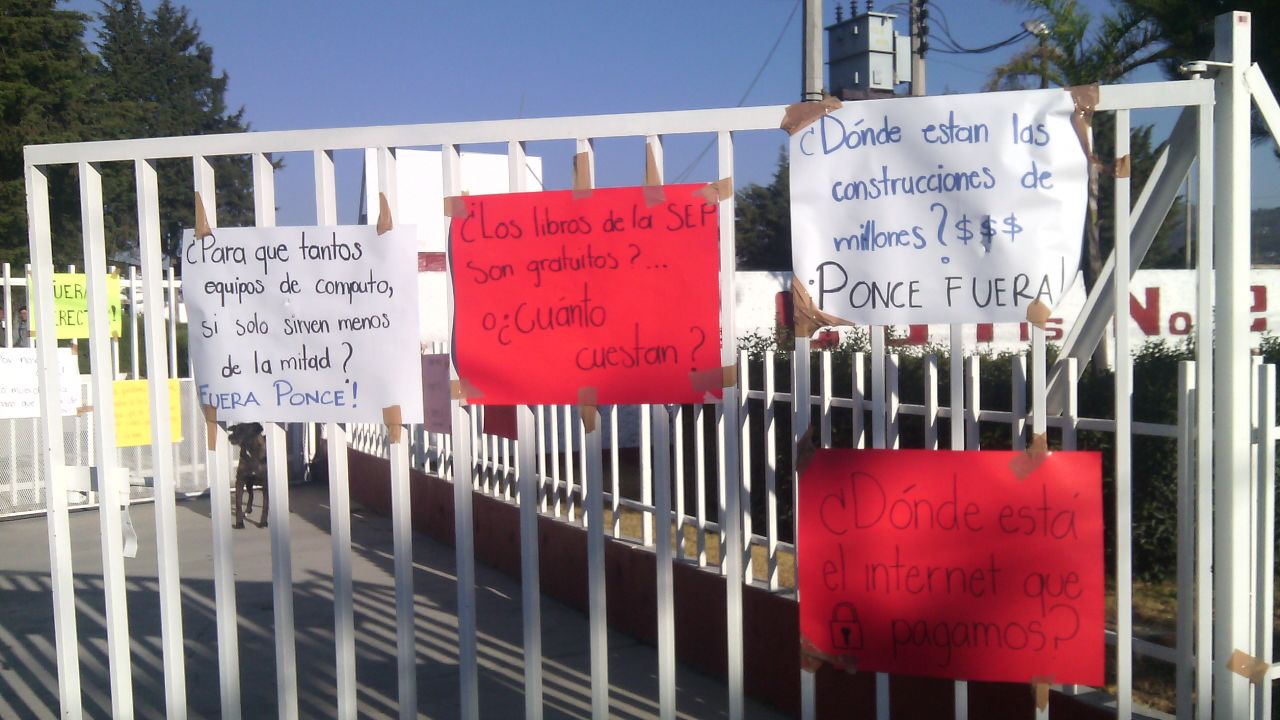 ¿Dónde estan las
construcciones de
millones? $$$
¡PONCE FUERA!
¿Los libros de la SEP
son gratuitos?...
o ¿Cuánto
cuestan?
¿Para que tantos
equipos de computo,
si solo sirven menos
de la mitad?
FUERA PONCE!
¿Dónde está
el internet que
pagamos?
FUERA
No 2